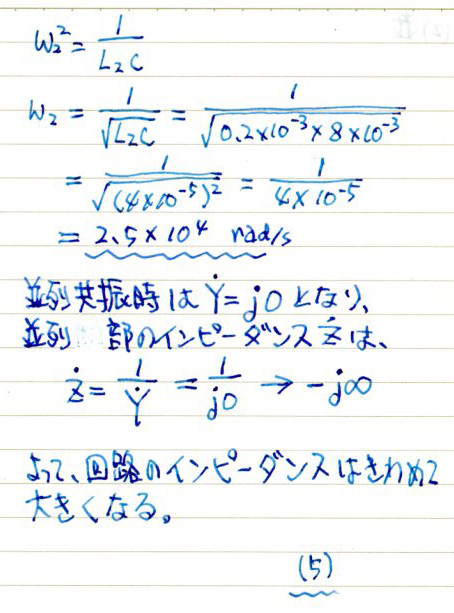 ω₂² = 1/(L₂C)
ω₂ = 1/√(L₂C) = 1/√(0.2×10⁻³×8×10⁻³)
= 1/√((4×10⁻⁵)²) = 1/(4×10⁻⁵)
= 2.5×10⁴ rad/s
並列共振時は Ẏ=j0 となり、
並列 部のインピーダンス ż は、
ż = 1/Ẏ = 1/j0 → -j∞
よって、回路のインピーダンスはきわめて
大きくなる。
(5)